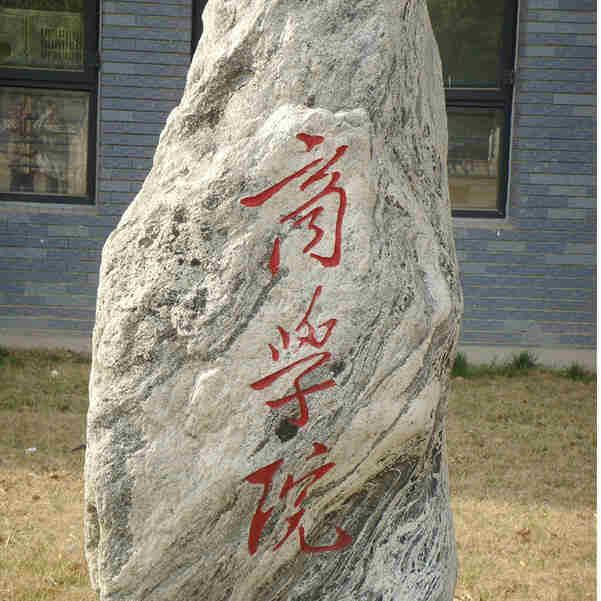 商学院